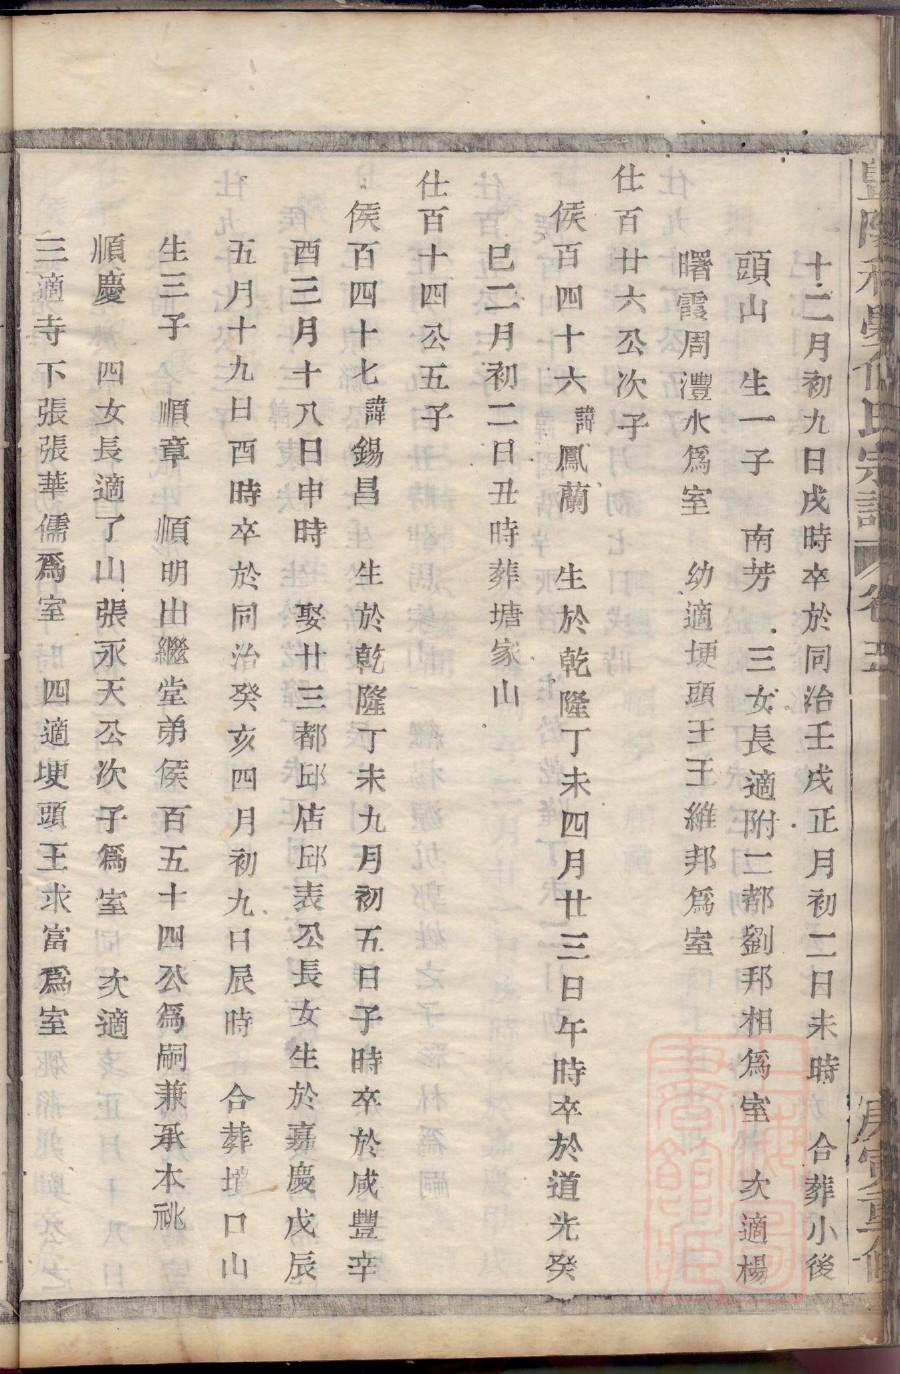 十二月初九日戌時卒於同治壬戌正月初二日未時 合葬小後
頭山 生一子 南芳 三女長適附二都劉邦相爲室 次適楊
曙霞周澧水爲室 幼適埂頭王王維邦爲室
仕百廿六公次子
侯百四十六 諱鳳蘭 生於乾隆丁未四月廿三日午時卒於道光癸
巳二月初二日丑時葬塘家山
仕百十四公五子
侯百四十七 諱錫昌 生於乾隆丁未九月初五日子時卒於咸豐辛
酉三月十八日申時 娶廿三都邱店邱表公長女生於嘉慶戊辰
五月十九日酉時卒於同治癸亥四月初九日辰時 合葬墳口山
生三子 順章 順明出繼堂弟侯百五十四公爲嗣兼承本祧
順慶 四女長適了山張永天公次子爲室 次適
三適寺下張張華儒爲室 四適埂頭王求富爲室
宗譜 卷五